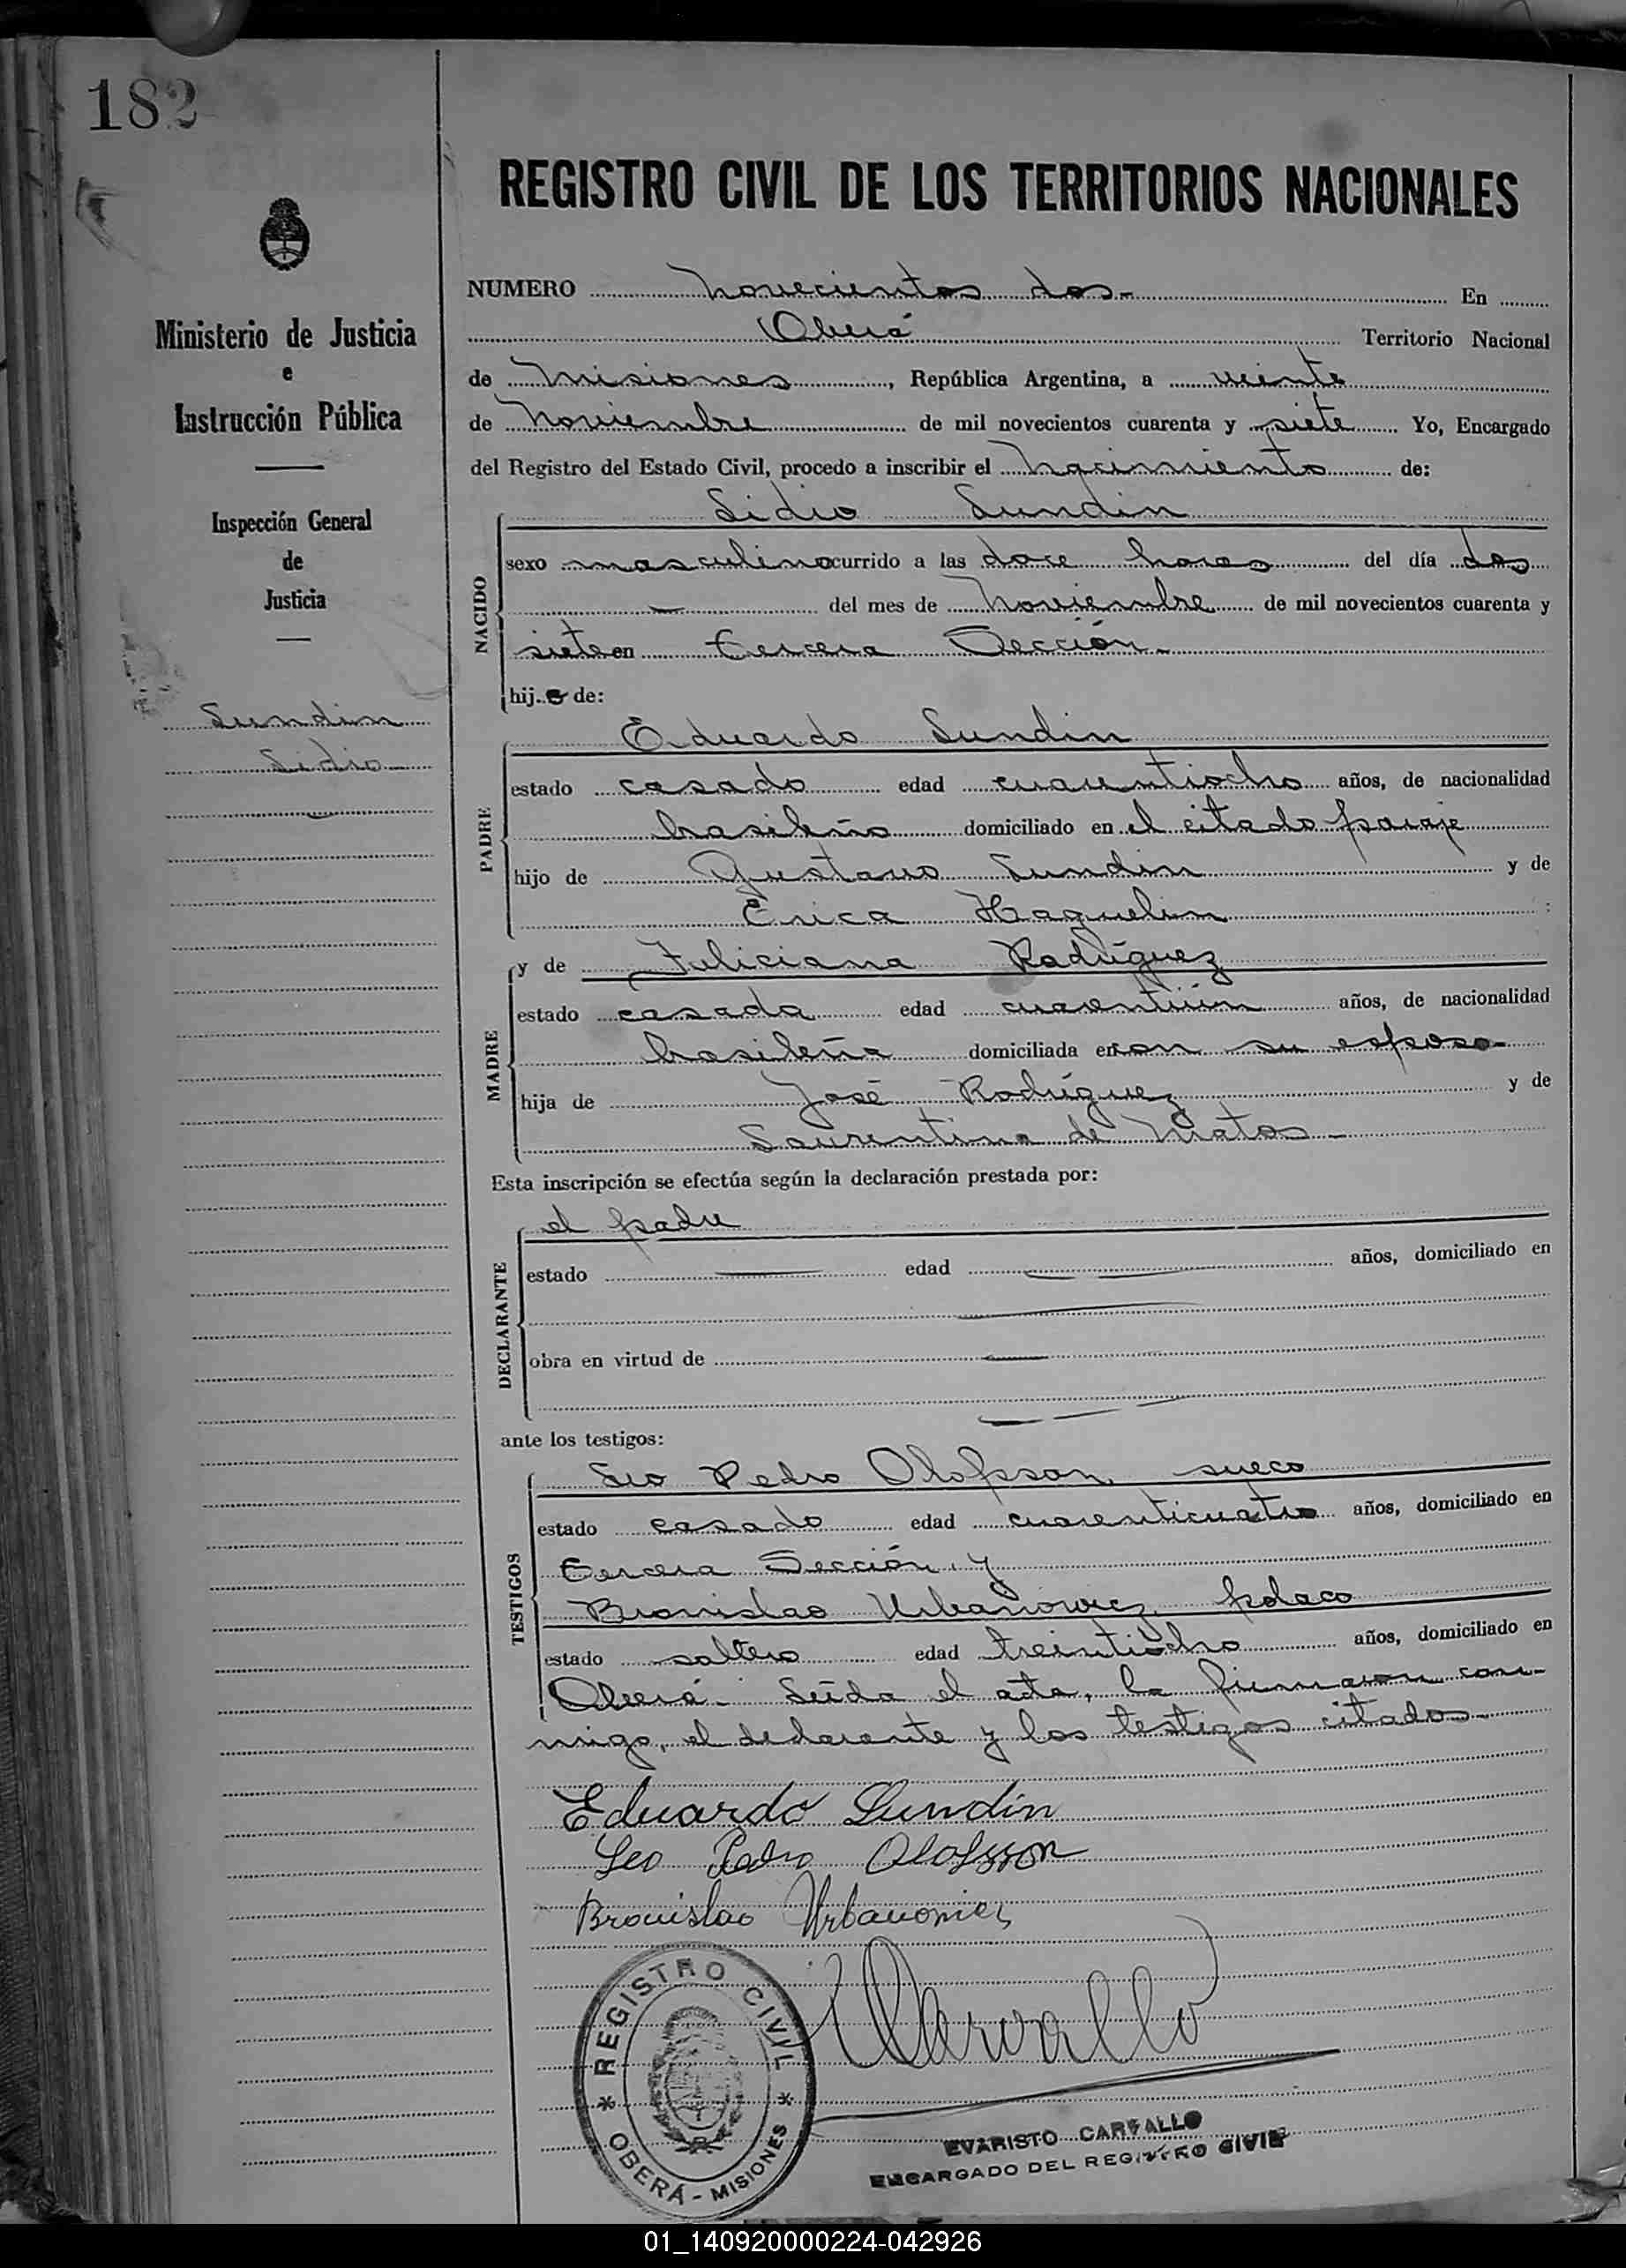 182
REGISTRO CIVIL DE LOS TERRITORIOS NACIONALES
Ministerio de Justicia
e
Instrucción Pública
Inspección General
de
Justicia
Sundin
Sidio
NUMERO novecientos dos.- En
Oberá Territorio Nacional
de Misiones, República Argentina, a veinte
de Noviembre de mil novecientos cuarenta y siete Yo, Encargado
del Registro del Estado Civil, procedo a inscribir el nacimiento de:
Sidio Sundin
NACIDO
sexo masculino ocurrido a las doce horas del día dos
— del mes de Noviembre de mil novecientos cuarenta y
siete en Tercera Sección.-
hijo de:
Eduardo Sundin
PADRE
estado casado edad cuarentiocho años, de nacionalidad
brasileño domiciliado en el citado paraje
hijo de Gustavo Sundin y de
Erica Haguelin
MADRE
y de Feliciana Rodríguez
estado casada edad cuarentiún años, de nacionalidad
brasileña domiciliada en con su esposo-
hija de José Rodríguez y de
Laurentina de Matos-
Esta inscripción se efectúa según la declaración prestada por:
el padre
DECLARANTE
estado — edad — años, domiciliado en
obra en virtud de —
ante los testigos:
Leo Pedro Olofsson sueco
TESTIGOS
estado casado edad cuarenticuatro años, domiciliado en
Tercera Sección y
Bronislao Urbanowicz polaco
estado soltero edad treintiocho años, domiciliado en
Oberá.- Leída el acta, la firmaron con-
migo, el declarante y los testigos citados-
Eduardo Sundin
Leo Pedro Olofsson
Bronislao Urbanowicz
Carvallo
REGISTRO CIVIL
OBERÁ - MISIONES
EVARISTO CARVALLO
ENCARGADO DEL REGISTRO CIVIL
01_140920000224-042926